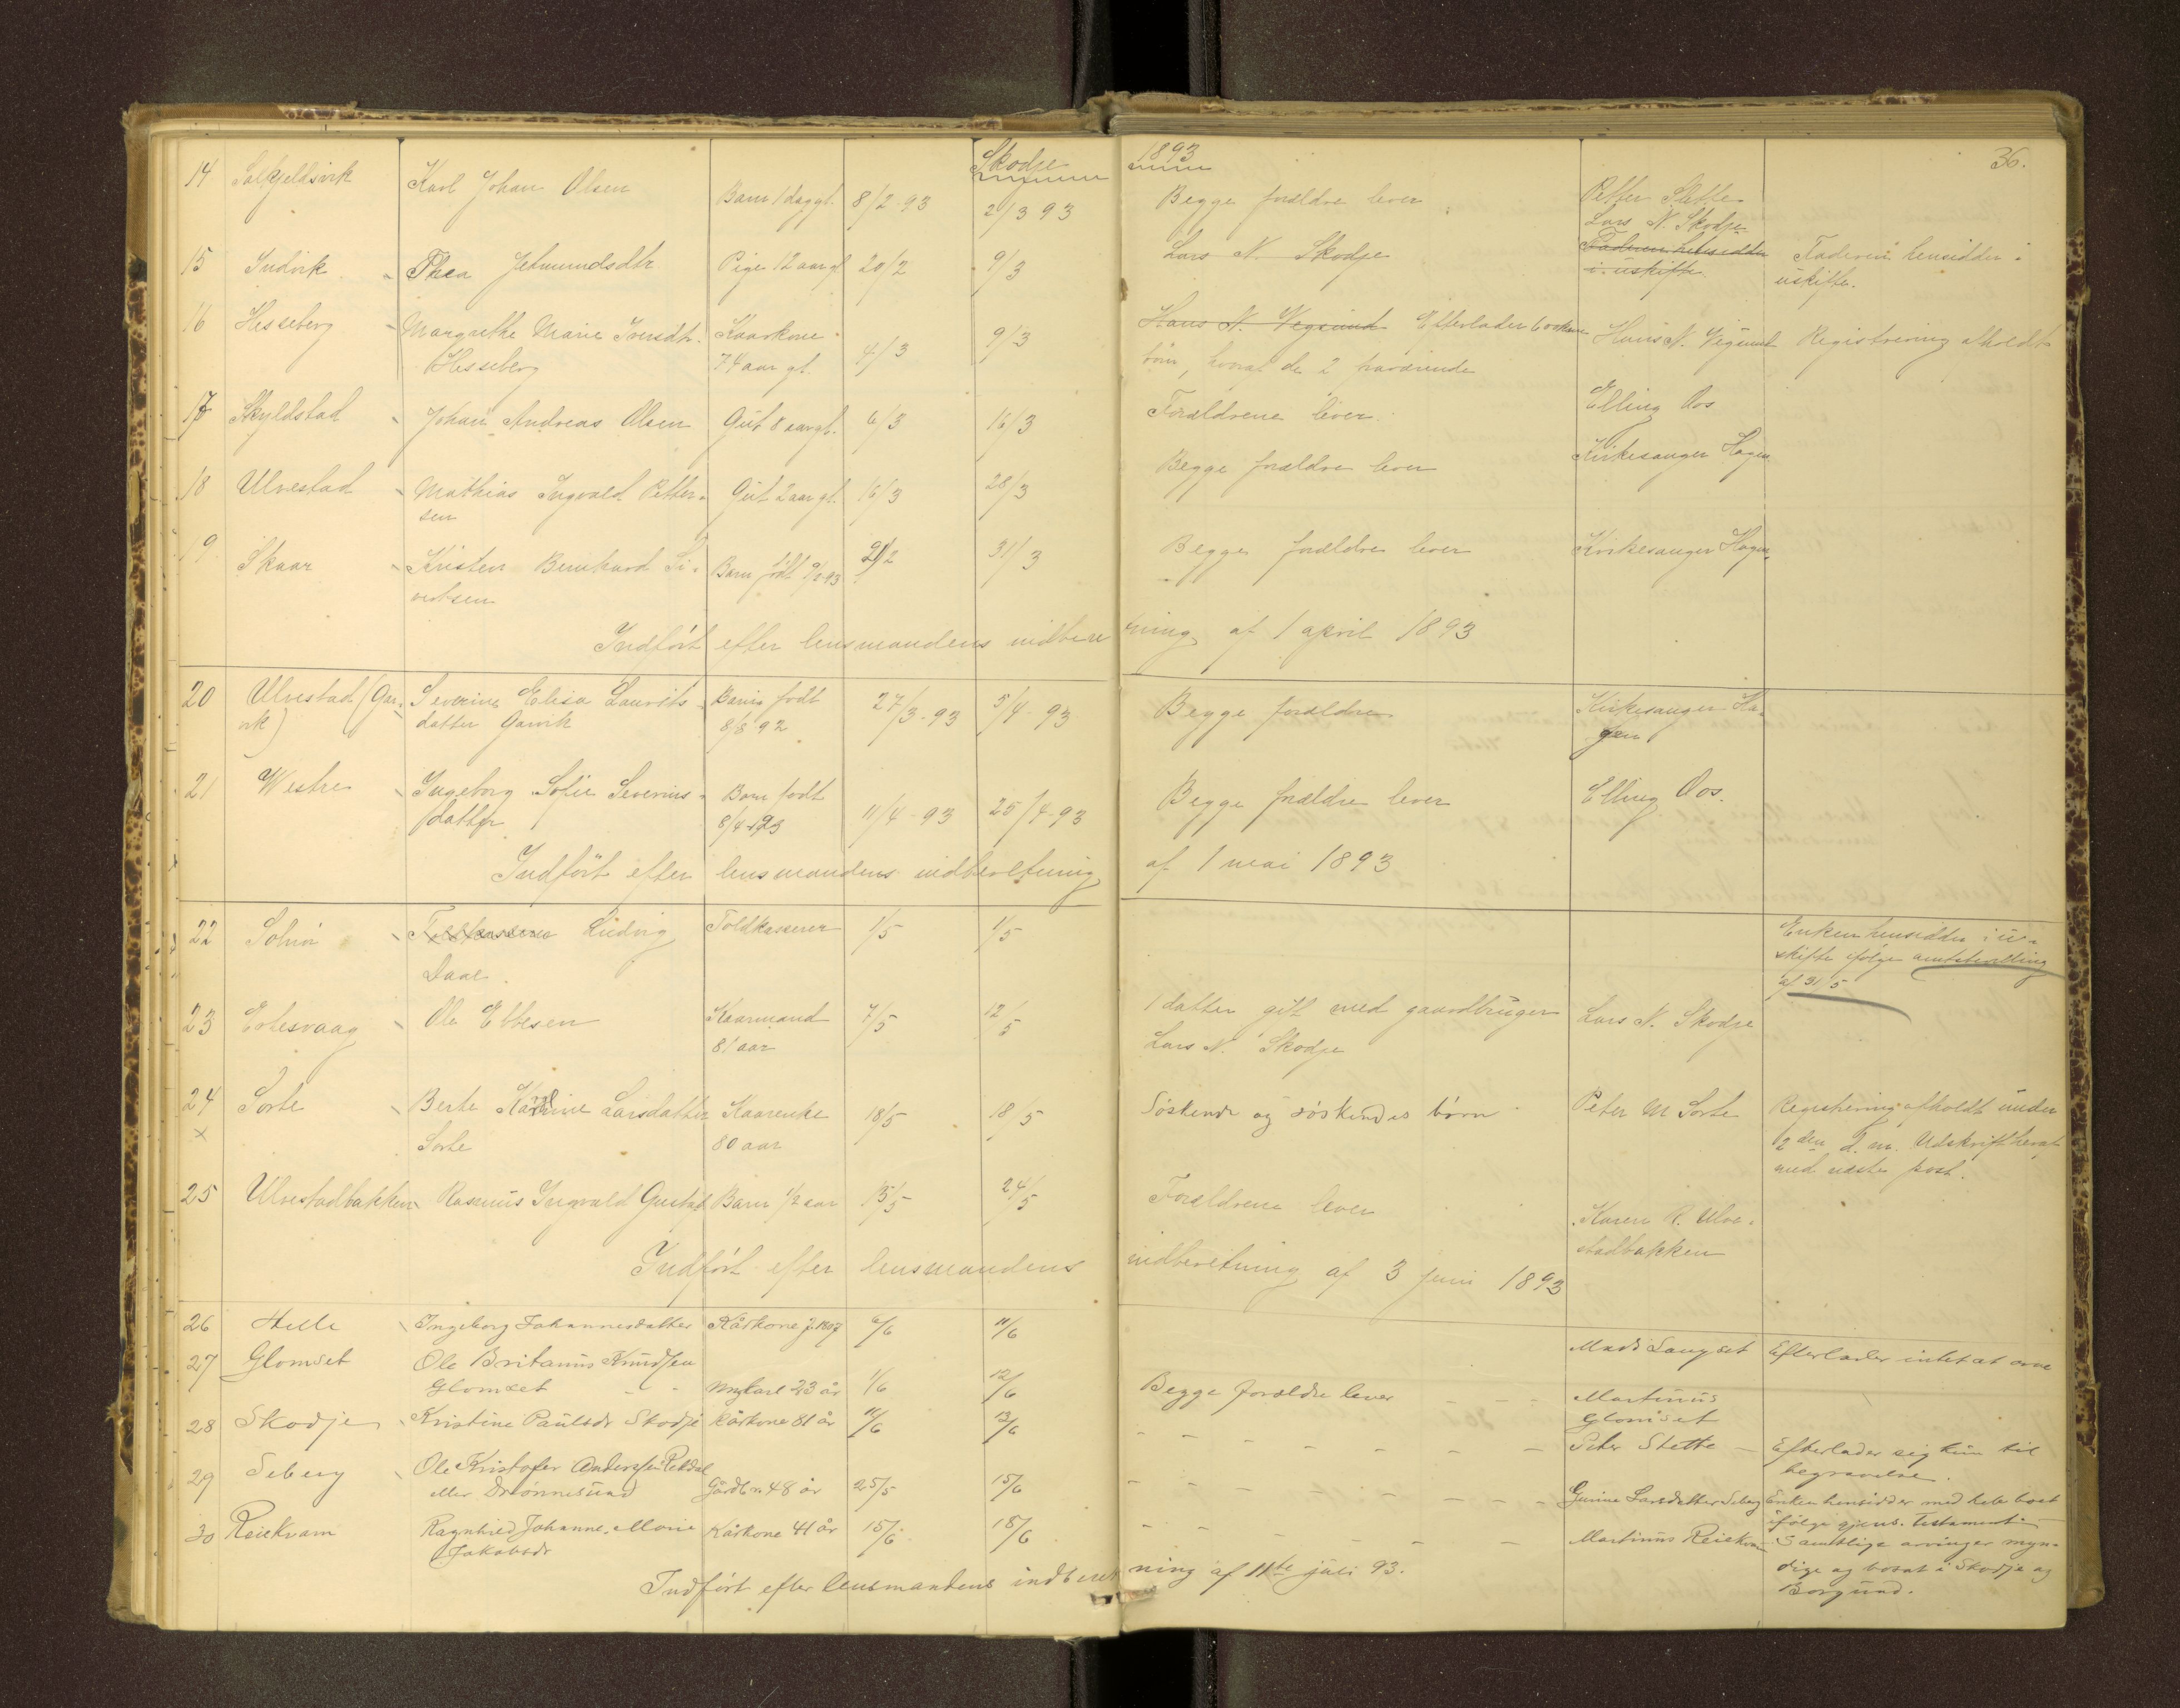 Skodje 1893 36.
14 Solkjeldsvik Karl Johan Olsen Barn 1 dag gl. 8/2-93 2/3 93 Begge forældre lever Petter Stette
Lars N. Skodje
15 Indvik Thea Jetmundsdtr Pige 12 aar gl 20/2 9/3 Lars N. Skodje Faderen hensidder Faderen hensidder i
i uskifte. uskifte.
16 Hesseberg Margrethe Marie Iversdtr. Kaarkone 4/3 9/3 Hans N. Vegsund Efterlader 6 voksne Hans N. Vegsund Registrering afholdt
Hesseberg 74 aar gl. børn, hvoraf de 2 fraværende
17 Skyldstad Johan Andreas Olsen Gut 8 aar gl. 6/3 16/3 Forældrene lever Elling Aas
18 Ulvestad Mathias Ingvald Petter- Gut 2 aar gl. 16/3 28/3 Begge forældre lever Kirkesanger Hagen
sen
19 Skaar Kristen Bernhard Si- Barn født 9/2 93 21/2 31/3 Begge forældre lever Kirkesanger Hagen
vertsen
Indført efter lensmandens indberetning af 1 april 1893
20 Ulvestad (Gar- Severine Elisa Laurits- Barn født 27/3-93 5/4-93 Begge forældre Kirkesanger Ha-
vik) datter Garvik 8/8 92 gen
21 Westre Ingeborg Sofie Severins- Barn født 11/4-93 25/4-93 Begge forældre lever Elling Aas.
datter 8/4-93
Indført efter lensmandens indberetning af 1 mai 1893
22 Solnør Ludvig Toldkasserer 1/5 1/5 Enken hensidder i u-
Daae skifte ifølge
af 31/5
23 Eidesvaag Ole Ebbesen Kaarmand 7/5 12/5 1 datter gift med gaardbruger Lars N. Skodje
81 aar Lars N. Skodje
24 Sorte Berte Larsdatter Kaarenke 18/5 18/5 Søskende og søskendes børn Peter M Sorte Registrering afholdt under
× Sorte 80 aar 2den d.m. Udskrift
med næste post.
25 Ulvestadbakken Rasmus Ingvald Gustaf Barn 1/2 aar 15/5 24/5 Forældrene lever Karen R. Ulve-
stadbakken
Indført efter lensmandens indberetning af 3 juni 1893
26 Helle Ingeborg Johannesdatter Kårkone f. 1807 6/6 11/6 Mads Langset Efterlader intet at arve
27 Glomset Ole Britanus Knudsen
Glomset ungkarl 23 år 1/6 12/6 Begge forældre lever Martinus
Glomset
28 Skodje Kristine Paulsdr Skodje kårkone 81 år 11/6 13/6 - - - - - - - Peter Stette Efterlader sig kun til
begravelse.
29 Seberg Ole Kristofer Andersen
eller Drønnesund Gårdbr. 48 år 25/5 15/6 - - - - - - - Gurine Larsdatter Seberg Enken hensidder med hele boet
ifølge gjens. Testament
30 Reiekvam Ragnhild Johanne Marie Kårkone 41 år 15/6 18/6 - - - - - - - Martinus Reiekvam Samtlige arvinger myn-
Jakobsdr dige og bosat i Skodje og
Borgund.
Indført efter lensmandens indberetning af 11te juli 93.